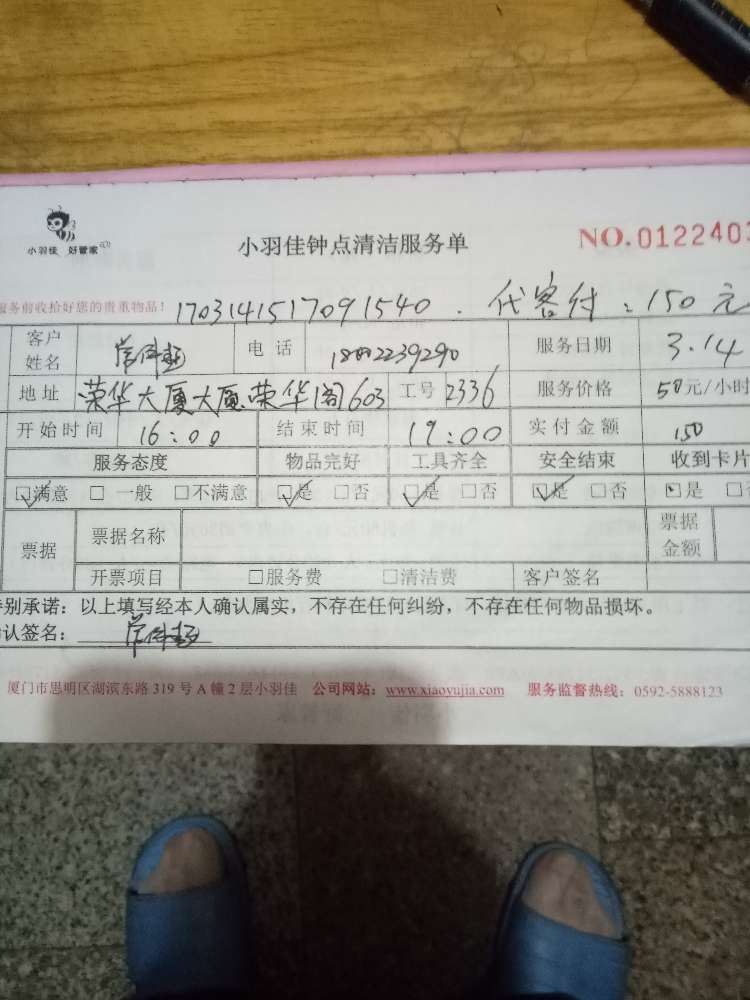 小羽佳 好管家
小羽佳钟点清洁服务单
NO.0122403
服务前收拾好您的贵重物品！ 1703141517091540. 代客付：150元
客户姓名 电话 18002239290 服务日期 3.14
地址 荣华大厦大厦荣华阁603 工号 2336 服务价格 50元/小时
开始时间 16:00 结束时间 19:00 实付金额 150
服务态度 物品完好 工具齐全 安全结束 收到卡片
☑满意 □一般 □不满意 ☑是 □否 ☑是 □否 ☑是 □否 ☑是 □否
票据 票据名称 票据金额
开票项目 □服务费 □清洁费 客户签名
特别承诺：以上填写经本人确认属实，不存在任何纠纷，不存在任何物品损坏。
确认签名：
厦门市思明区湖滨东路319号A幢2层小羽佳 公司网站：www.xiaoyujia.com 服务监督热线：0592-5888123